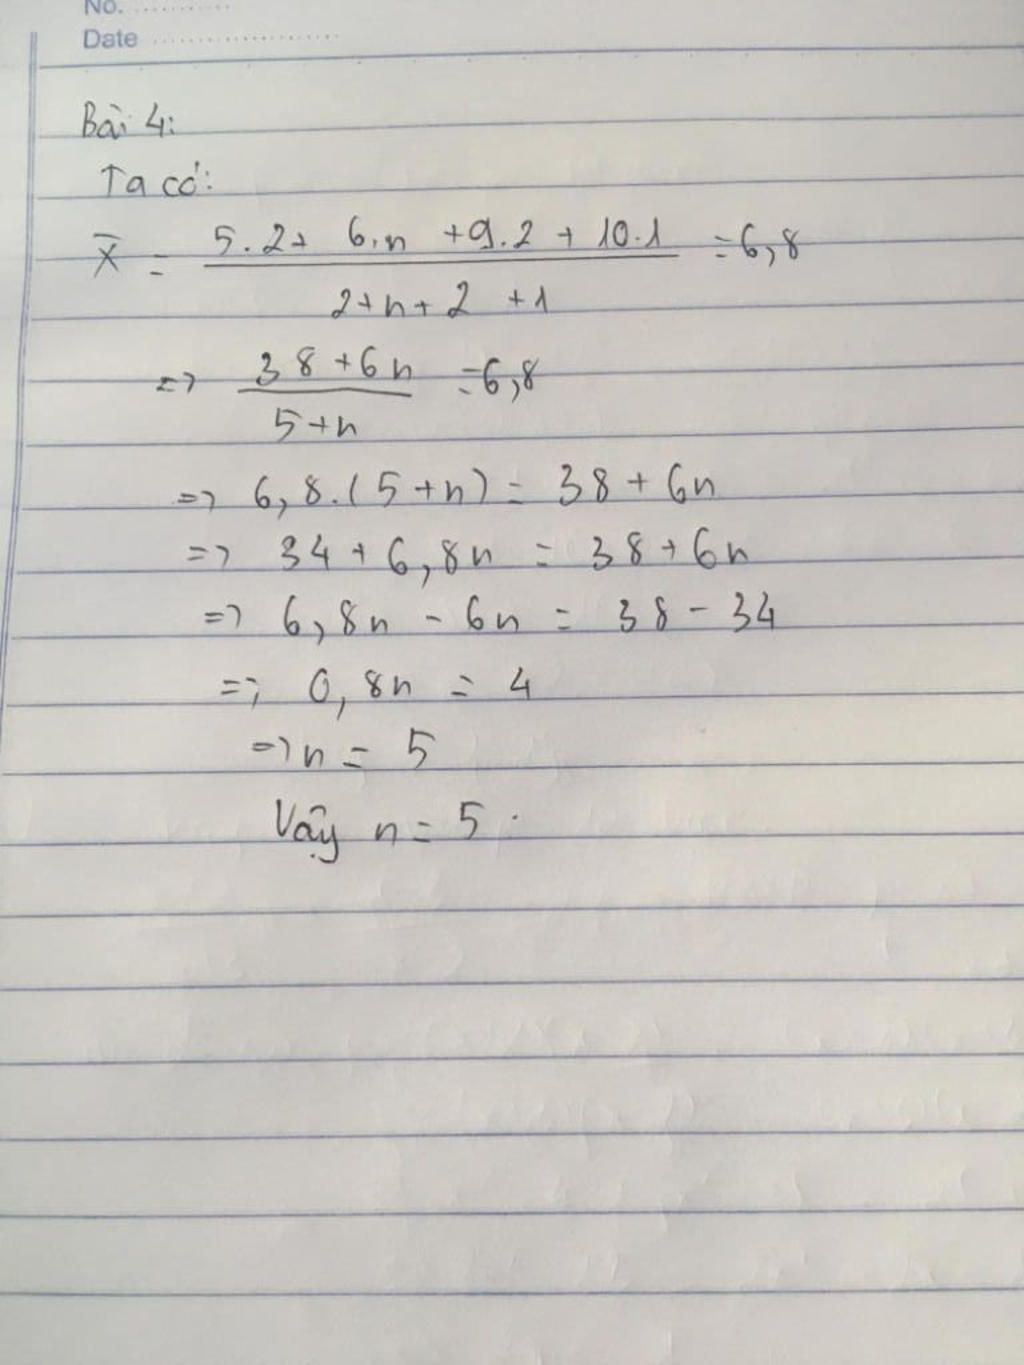 No. ............
Date ........................
Bài 4:
Ta có:
x̄ = (5.2 + 6.n + 9.2 + 10.1) / (2+n+2+1) = 6,8
=> (38+6n) / (5+n) = 6,8
=> 6,8.(5+n) = 38+6n
=> 34+6,8n = 38+6n
=> 6,8n - 6n = 38-34
=> 0,8n = 4
=> n = 5
Vậy n = 5.